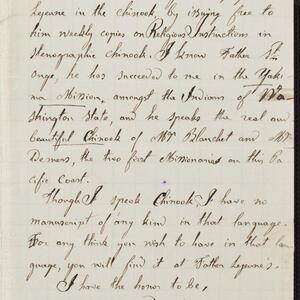 Lejeune in the Chinook, by issuing free to
him weekly copies on Religious Instructions in
stenographic Chinook. I know Father St
onge, he has succeeded to me in the Yaki-
ma Mission, amongst the Indians of Wa-
shington State, and he speaks the real and
beautiful Chinook of Mgr Blanchet and Mgr
Demers, the two first Missionaries on this Pa-
cific Coast.
Though I speak Chinook, I have no
manuscript of any kind in that language.
For any think you wish to have in that lan-
guage, you will find it at Father Lejeune's.
I have the honor to be,